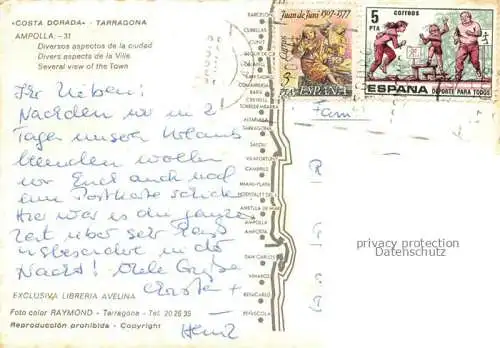 «COSTA DORADA» - TARRAGONA
AMPOLLA. - 31
Diversos aspectos de la ciudad
Divers aspects de la Ville
Several view of the Town
Ihr Lieben!
Nachdem wir in 2
Tagen unseren Urlaub
beenden wollen
wir Euch auch noch
eine Postkarte schicken.
Hier war es die ganze
Zeit über sehr
insbesondere in der
Nacht! Viele Grüße
+
Heinz
EXCLUSIVA LIBRERIA AVELINA
Foto color RAYMOND - Tarragona - Tel. 20 26 35
Reproducción prohibida - Copyright
BARCELONA
CUBELLAS
CUNIT
SEGUR
CALAFELL
COMARRUGA
BARA
CREIXELL
TORREDEMBARRA
ALTAFULLA
TARRAGONA
SALOU
VILAFORTUNY
CAMBRILS
MIAMI-PLAYA
HOSPITALET DEL I.
AMETLLA DE MAR
AMPOLLA
AMPOSTA
SAN CARLOS
VINAROZ
BENICARLO
PEÑISCOLA
Juan de Juni 1507-1977
Correos
3 PTA
ESPAÑA
5 PTA
CORREOS
ESPAÑA
DEPORTE PARA TODOS
Fam
privacy protection
Datenschutz